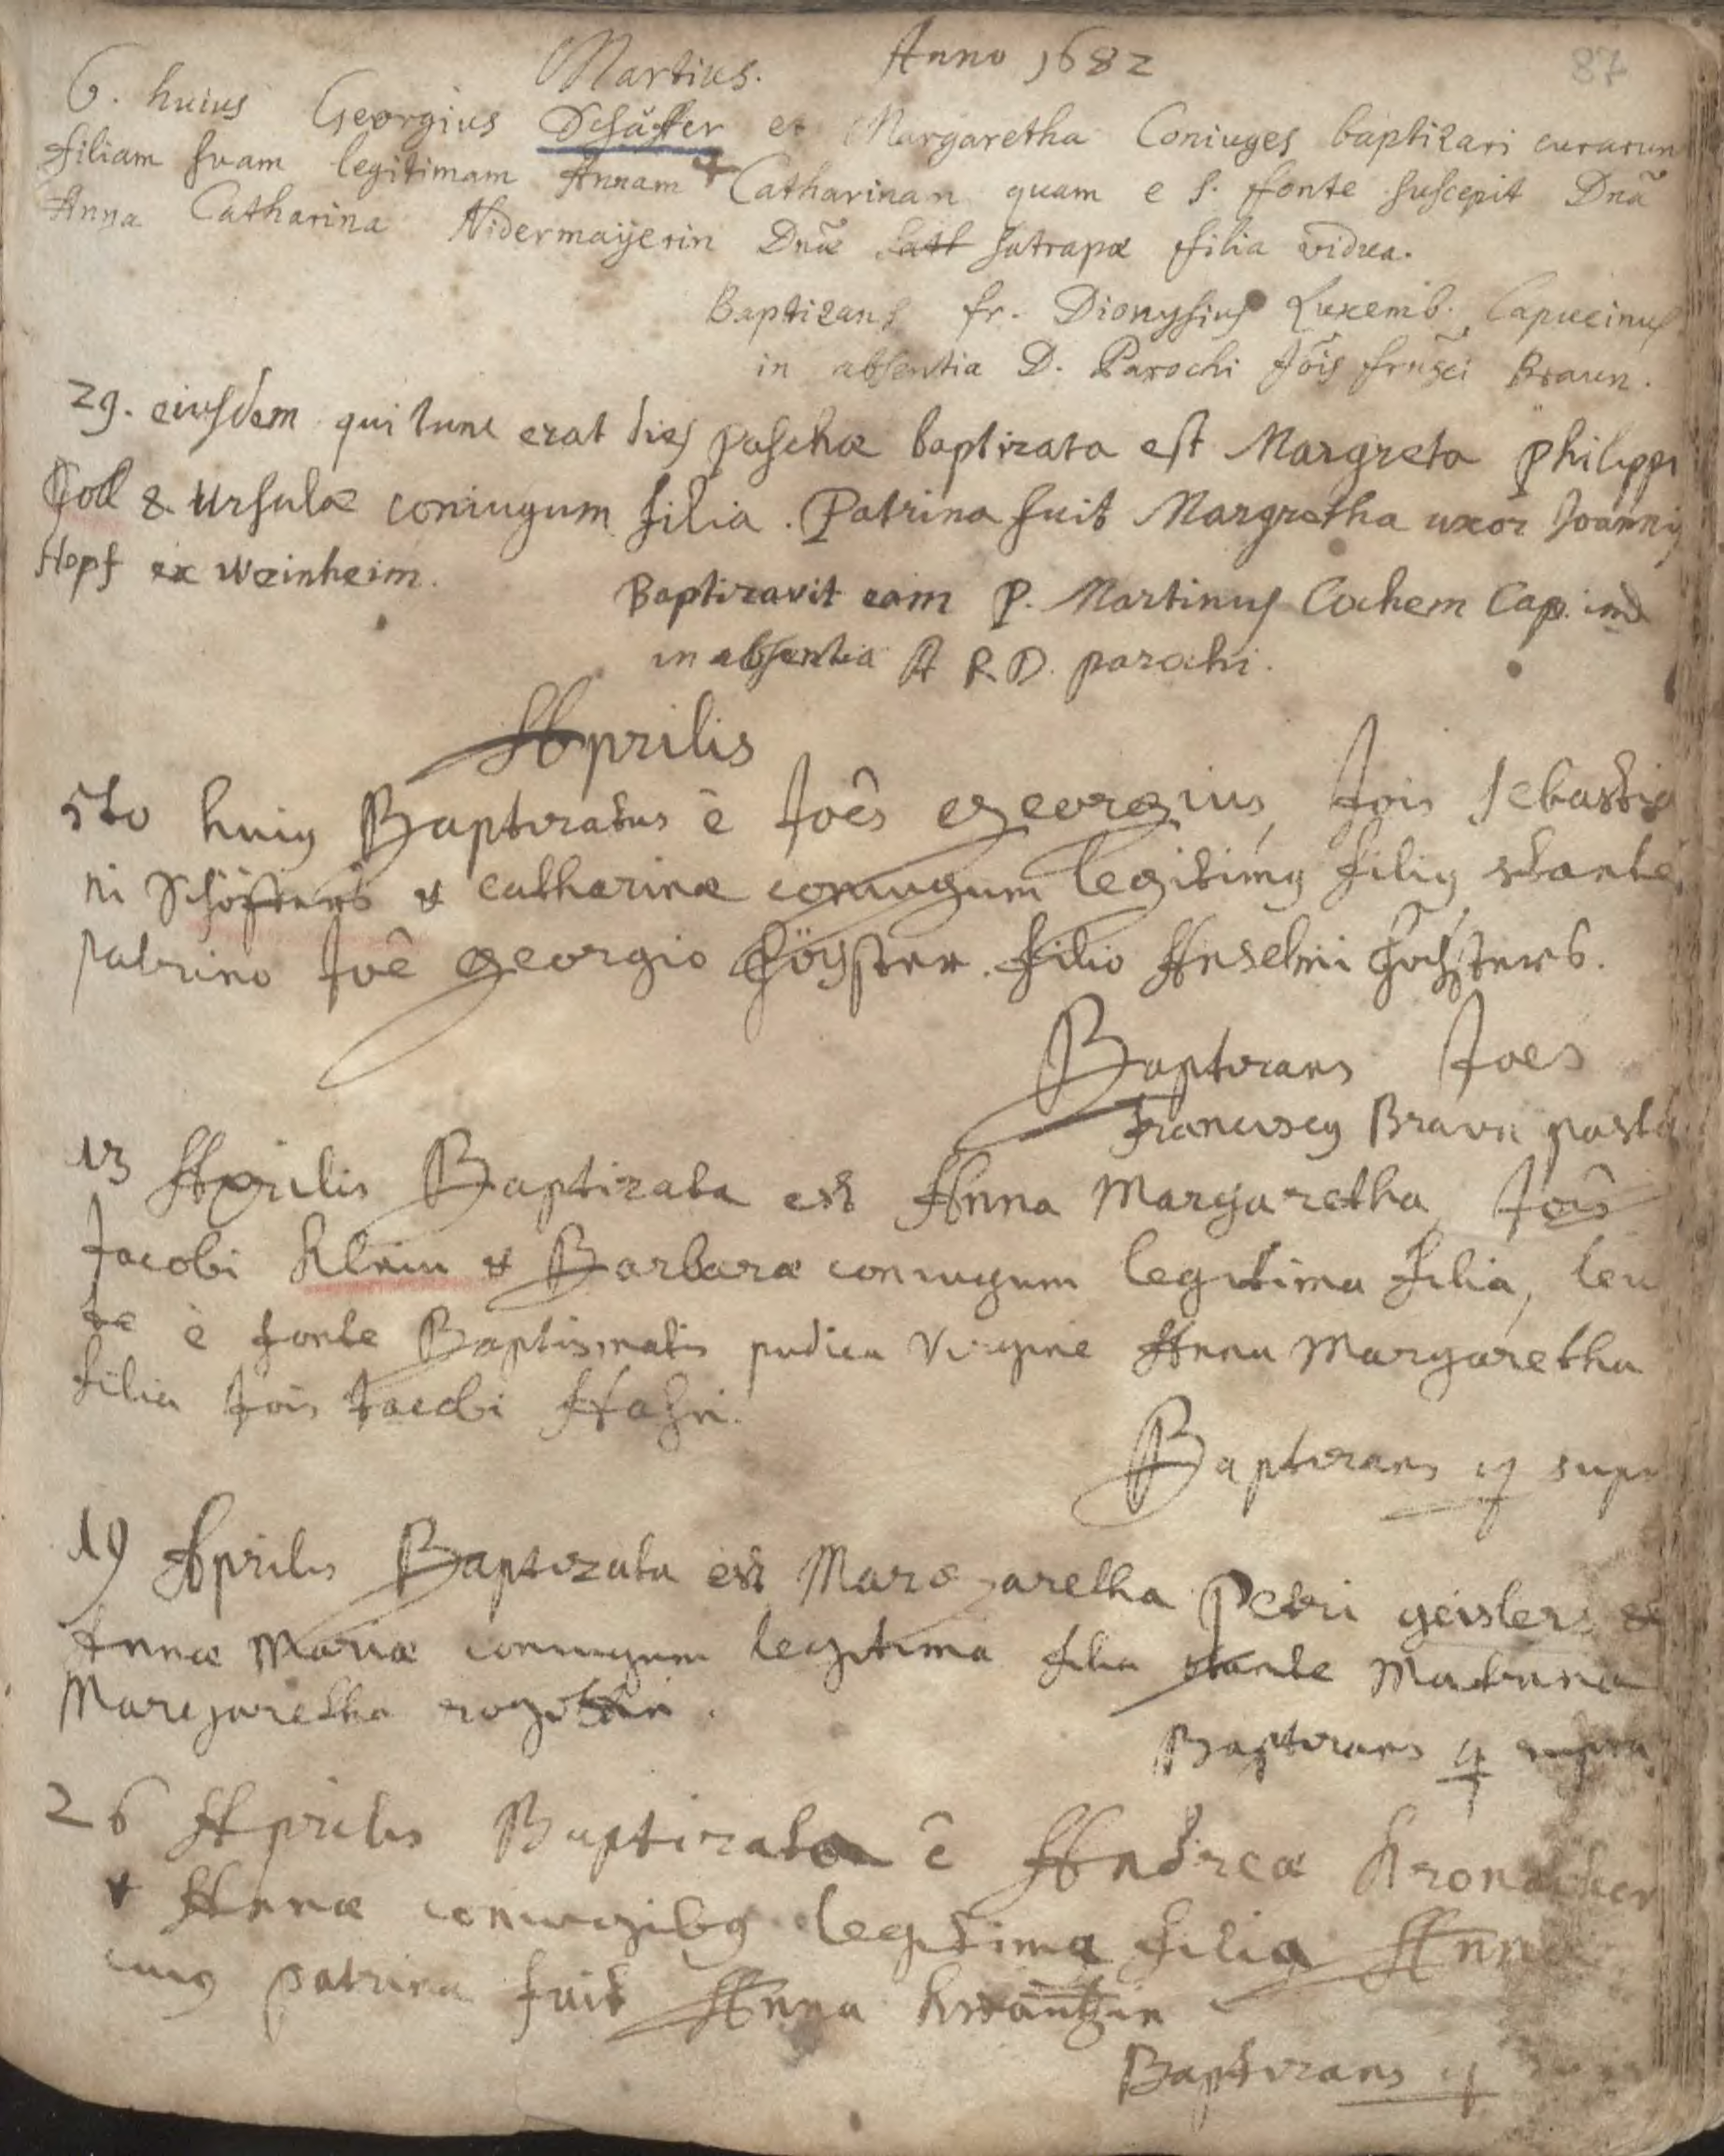 Martius. Anno 1682 87
6. huius Georgius Schäffer et Margaretha Coniuges baptizari curarun
filiam suam legitimam Annam Catharinam quam e S. ffonte suscepit Dnã
Anna Catharina Nidermaÿerin Dnĩ Satrapæ ffilia vidua.
Baptizans fr. Dionysius Luxemb. Capucinus
in absentia D. Parochi Jõis frãsci Braun.
29. eiusdem qui tunc erat dies paschæ baptizata est Margreta Philippi
& Ursulæ coniugum filia. Patrina fuit Margretha uxor Joannis
Hopf ex Weinheim.
Baptizavit eam P. Martinus Cochem Cap. ind
in absentia A R. D. parochi.
Aprilis
5to huius Baptizatus ē Joês georgius, Jois Sebastia
ni & catharinæ coniugum legitimus filius stante
patrino Joê georgio filio Anselmi
Baptizans Joes
Franciscus Braun pasto
13 Aprilis Baptizata est Anna Margaretha, Joîs
Jacobi Klein & Barbaræ coniugum legitima filia, leu
te è fonte Baptismatis pudica Virgine Anna Margaretha
filia Jois Jacobi Hahn.
Baptizans ut supr
19 Aprilis Baptizata est Margaretha Petri geislers &
Annæ Mariæ coniugum legitima filia stante Matrina
Margaretha
Baptizans ut supra
26 Aprilis Baptizata ê Andreæ Kronacher
& Annæ coniugibus legitima filia Anna
cuius patrina fuit Anna
Baptizans ut